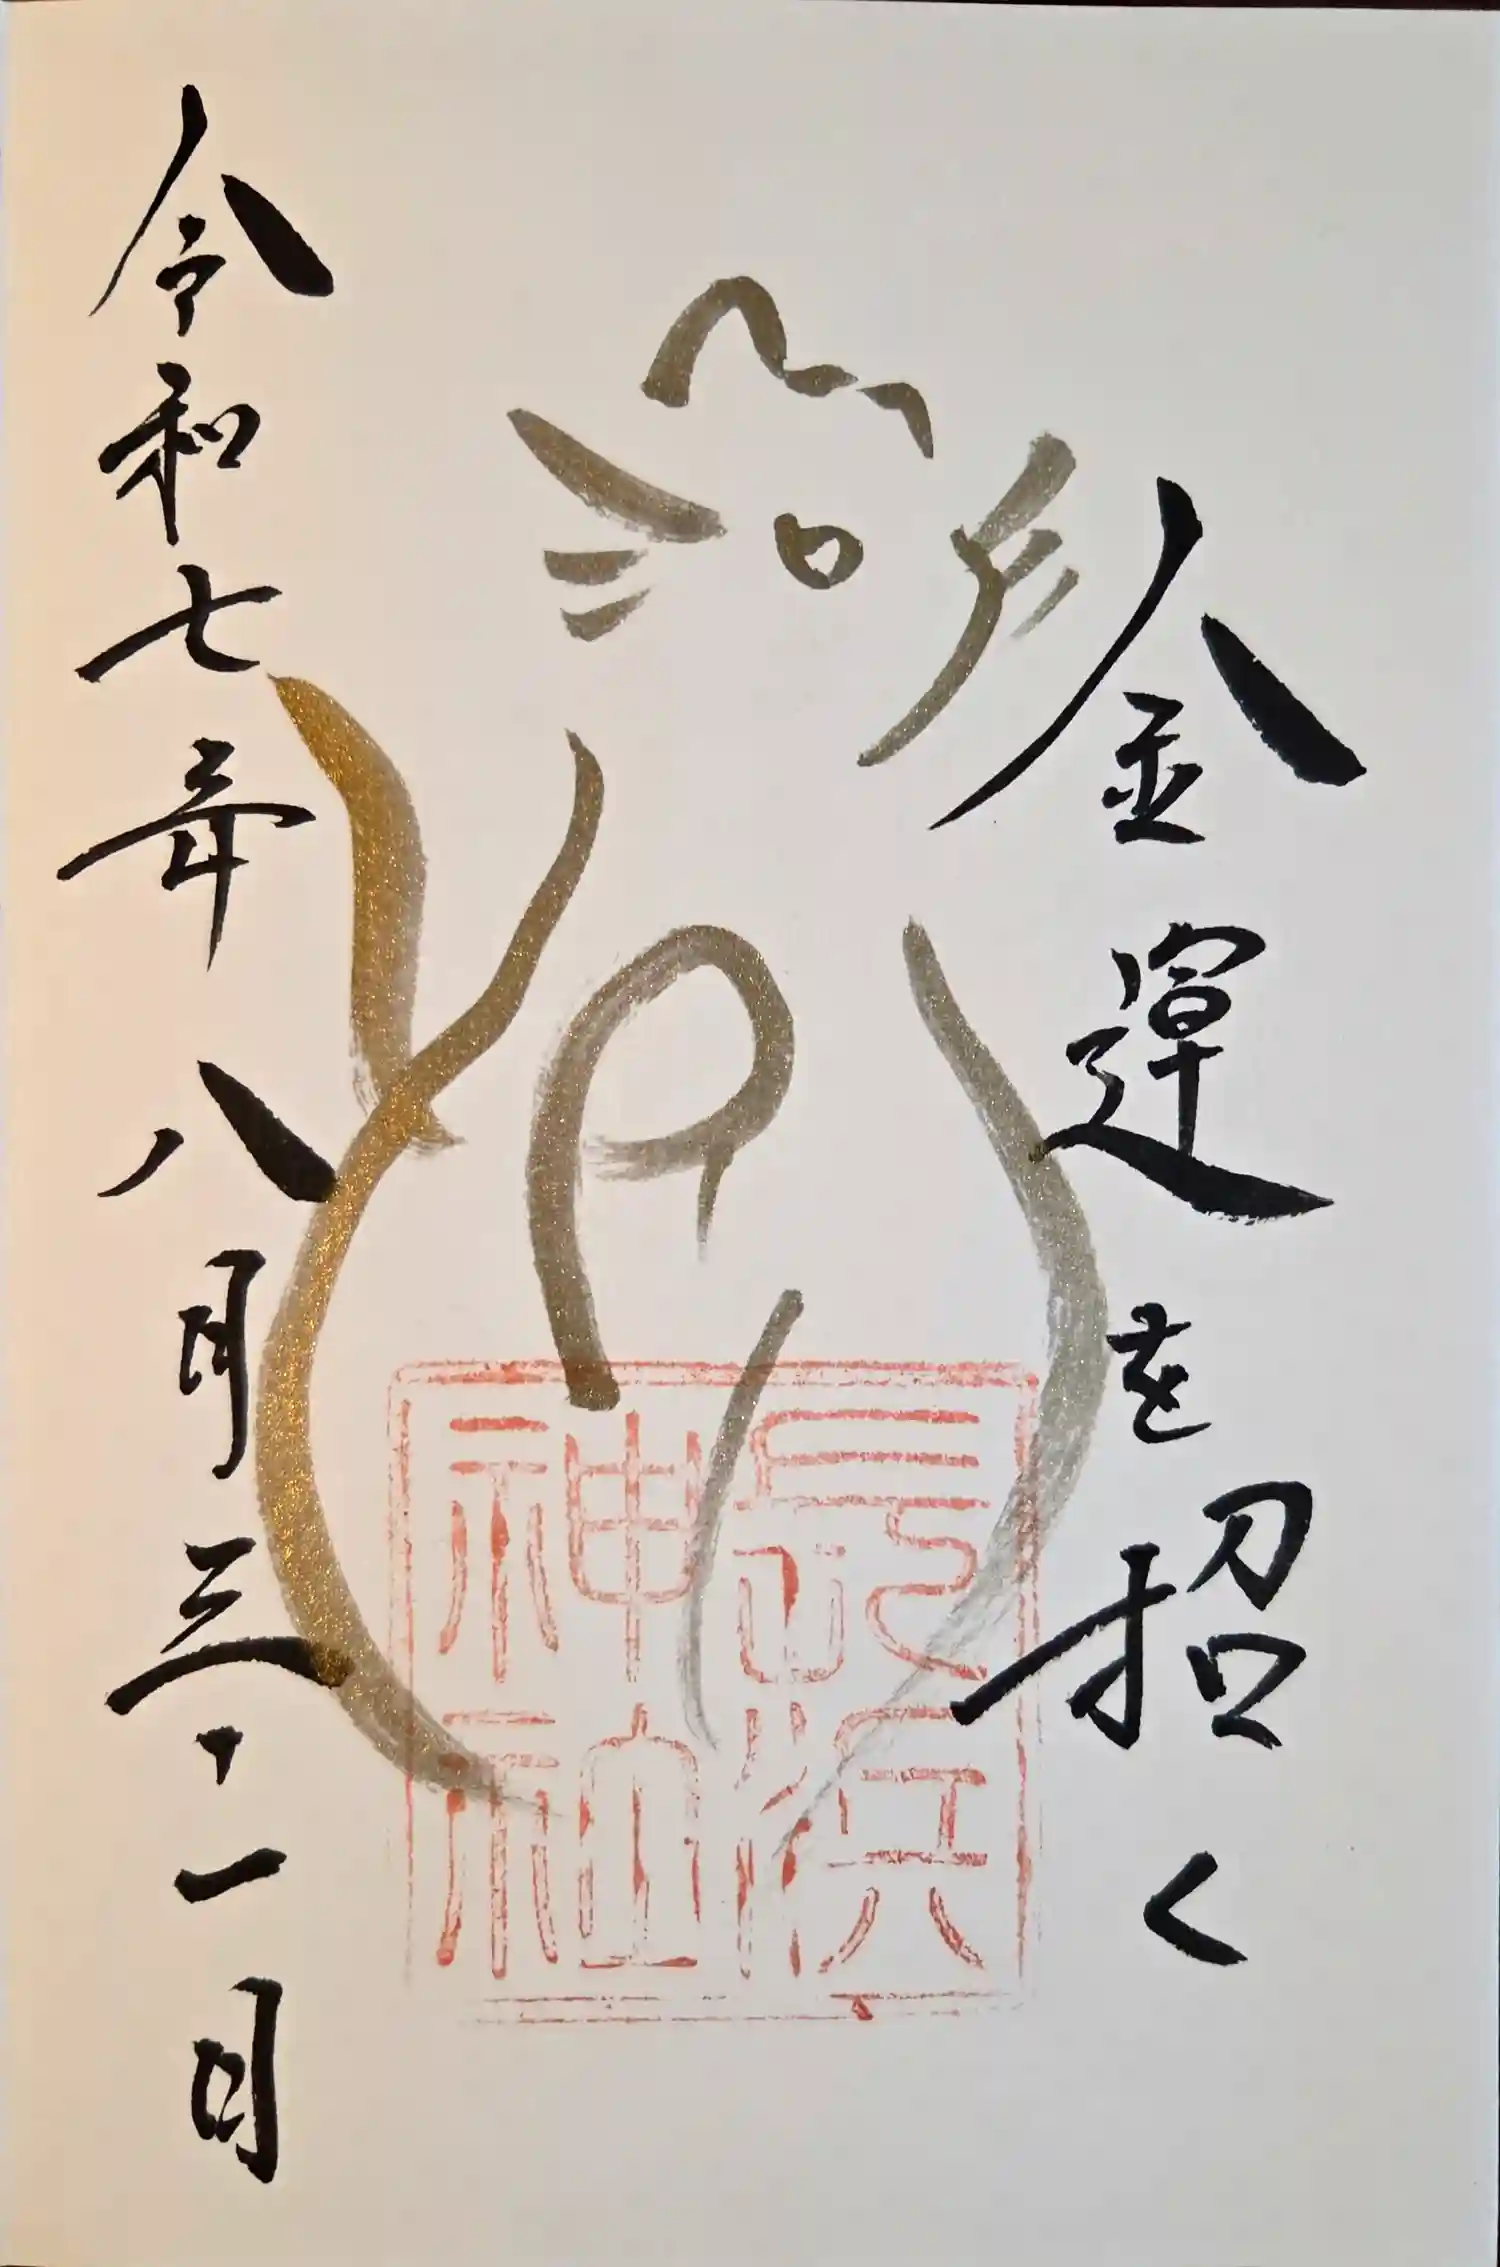 金運を招く
長浜
神社
令和七年八月三・一日